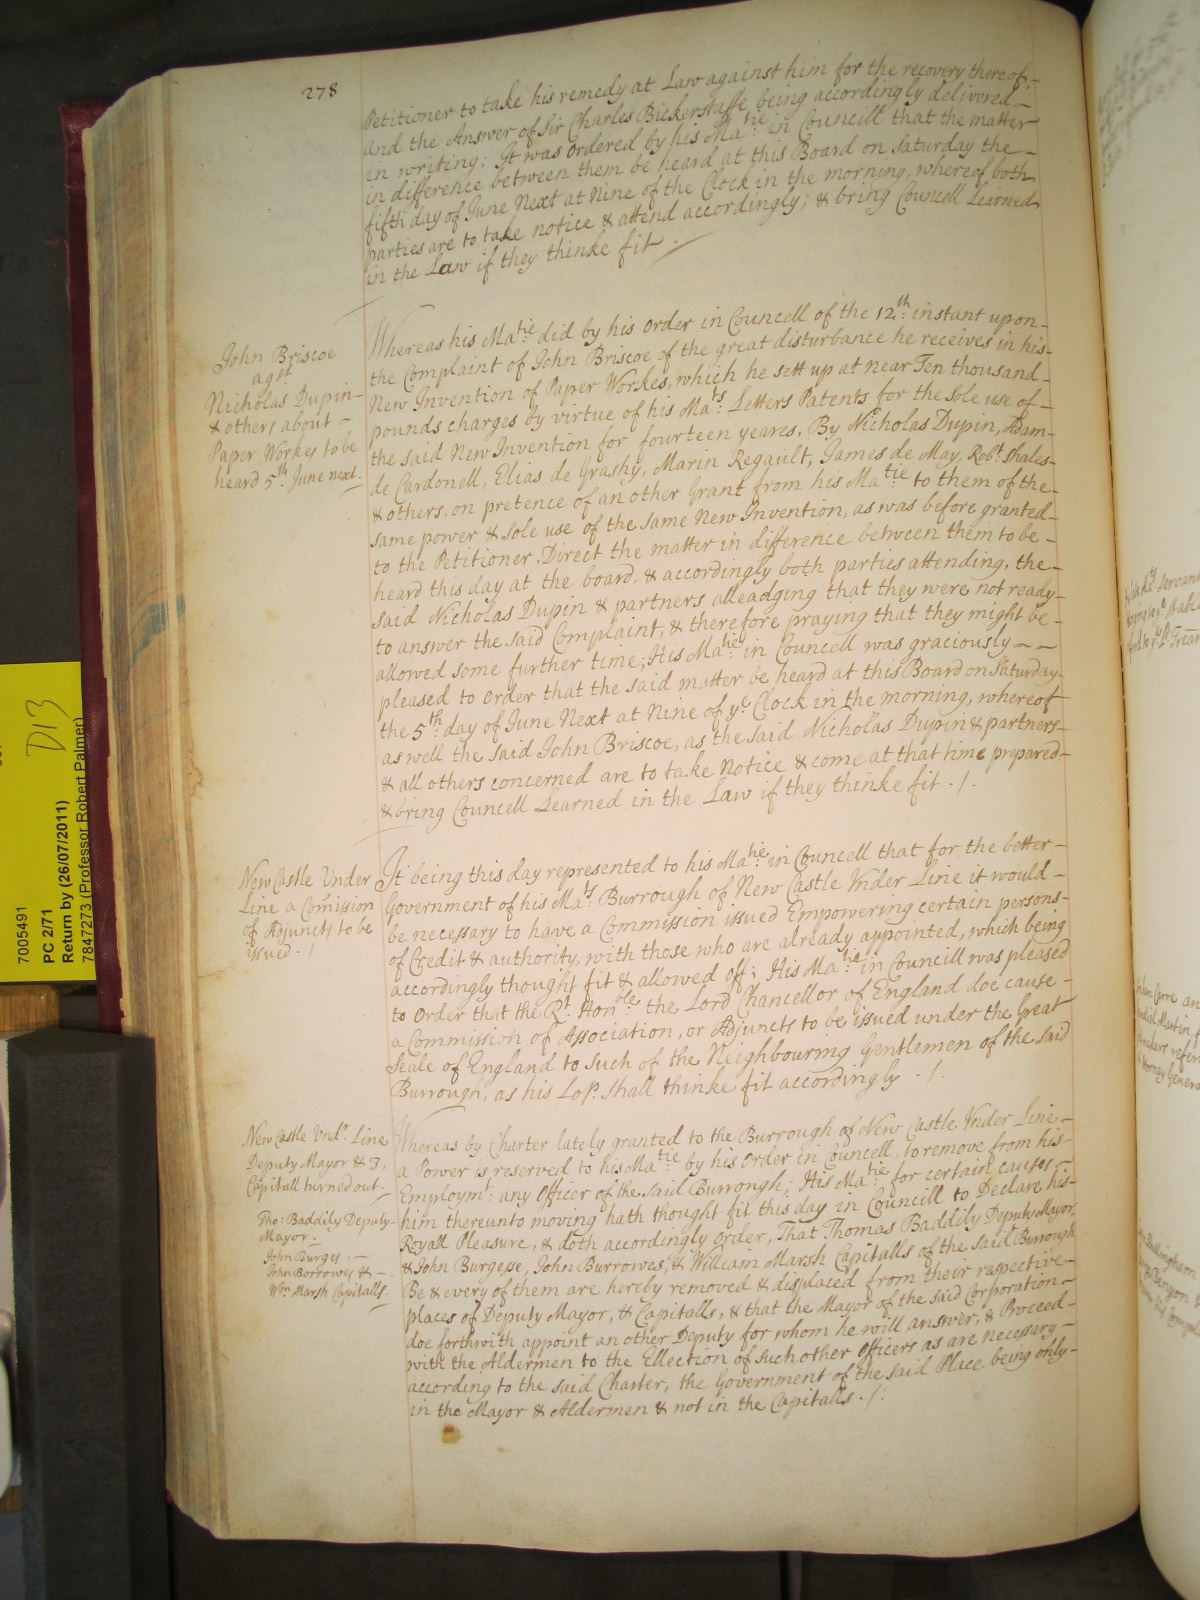 278
Petitioner to take his remedy at Law against him for the recovery thereof,
and the Answer of Sir Charles Bickerstaffe being accordingly delivered
in writing; It was Ordered by his Ma:tie in Councill that the matter
in difference between them be heard at this Board on Saturday the
fifth day of June Next at Nine of the Clock in the morning, whereof both
parties are to take notice & attend accordingly; & bring Councell Learned
in the Law if they thinke fit
John Briscoe
agst
Nicholas Dupin
& others about
Paper Workes to be
heard 5th June next.
Whereas his Ma:tie did by his Order in Councell of the 12:th instant upon
the Complaint of John Briscoe of the great disturbance he receives in his
New Invention of Paper Workes, which he sett up at near Ten thousand
pounds charges by virtue of his Ma:ts Letters Patents for the sole use of
the said New Invention for fourteen yeares, By Nicholas Dupin, Adam
de Cardonell, Elias de Grashy, Marin Regault, James de May, Robt. Shales
& others, on pretence of an other Grant from his Ma:tie to them of the
same power & sole use of the same New Invention, as was before granted
to the Petitioner, Direct the matter in difference between them to be
heard this day at the board, & accordingly both parties attending, the
said Nicholas Dupin & partners alleadging that they were not ready
to answer the said Complaint, & therefore praying that they might be
allowed some further time; His Ma:tie in Councell was graciously
pleased to Order that the said matter be heard at this Board on Saturday
the 5:th day of June Next at Nine of ye Clock in the morning, whereof
as well the said John Briscoe, as the said Nicholas Dupin & partners
& all others concerned are to take Notice & come at that time prepared
& bring Councell Learned in the Law if they thinke fit ./.
New Castle Under
Line a Comission
of Adjuncts to be
issued ./
It being this day represented to his Ma:tie in Councell that for the better
Government of his Ma:ts Burrough of New Castle Under Line it would
be necessary to have a Commission issued Empowering certain persons
of Credit & authority, with those who are already appointed, which being
accordingly thought fit & allowed off; His Ma:tie in Councill was pleased
to Order that the Rt. Honble: the Lord Chancellor of England doe cause
a Commission of Association, or Adjuncts to be issued under the Great
Seale of England to such of the Neighbouring Gentlemen of the said
Burrough, as his Lop. shall thinke fit accordingly ./.
New Castle Undr. Line
Deputy Mayor & 3.
Capitall turned out.
Tho: Baddily Deputy
Mayor.
John Burges.
John Borrowes &
Wm Marsh Capitalls.
Whereas by Charter lately granted to the Burrough of New Castle Under Line
a Power is reserved to his Ma:tie by his Order in Councell, to remove from his
Employmt: any Officer of the said Burrough; His Ma:tie for certain causes
him thereunto moving hath thought fit this day in Councill to Declare his
Royall Pleasure, & doth accordingly order, That Thomas Baddily Deputy Mayor,
& John Burgesse, John Burrowes, & William Marsh Capitalls of the said Burrough
Be & every of them are hereby removed & displaced from their raspective
places of Deputy Mayor, & Capitalls, & that the Mayor of the said Corporation
doe forthwith appoint an other Deputy for whom he will answer, & Proceed
with the Aldermen to the Ellection of such other Officers as are necessary
according to the said Charter, the Government of the said Place being only
in the Mayor & Aldermen & not in the Capitalls ./.
D13
7005491
PC 2/71
Return by (26/07/2011)
7847273 (Professor Robert Palmer)